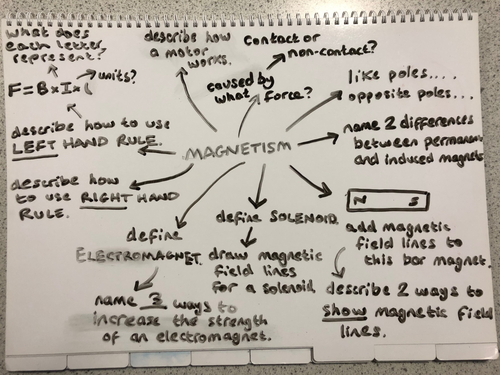 what does
each letter
represent?
units?
F = B x I x l
describe how
a motor
works.
contact or
non-contact?
caused by
what force?
like poles....
opposite poles...
describe how to use
LEFT HAND RULE.
MAGNETISM
name 2 differences
between permanent
and induced magnets
describe how
to use RIGHT HAND
RULE.
define
ELECTROMAGNET.
name 3 ways to
increase the strength
of an electromagnet.
define SOLENOID.
draw magnetic
field lines
for a solenoid.
N S
add magnetic
field lines to
this bar magnet.
describe 2 ways to
show magnetic field
lines.